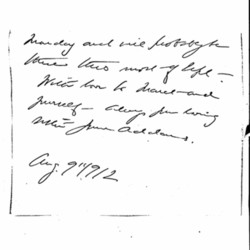 Monday and will probably be
there this most of Sept –
With love to Mary and
yourself – always your loving
sister Jane Addams.
Aug. 9" 1912